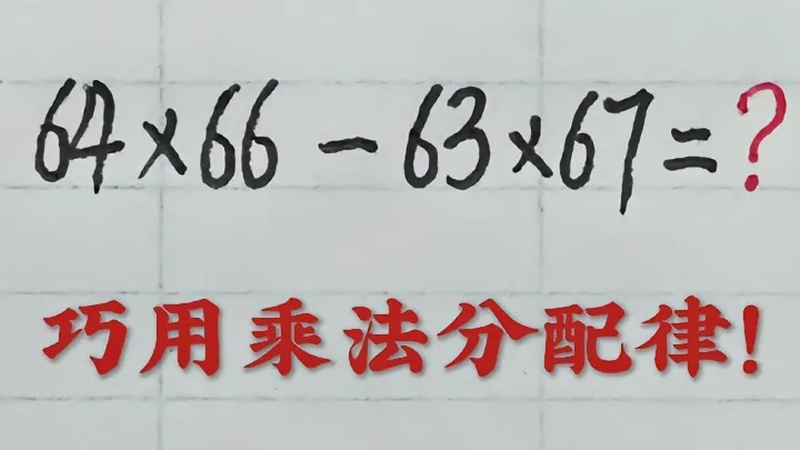 64×66-63×67=?
巧用乘法分配律!